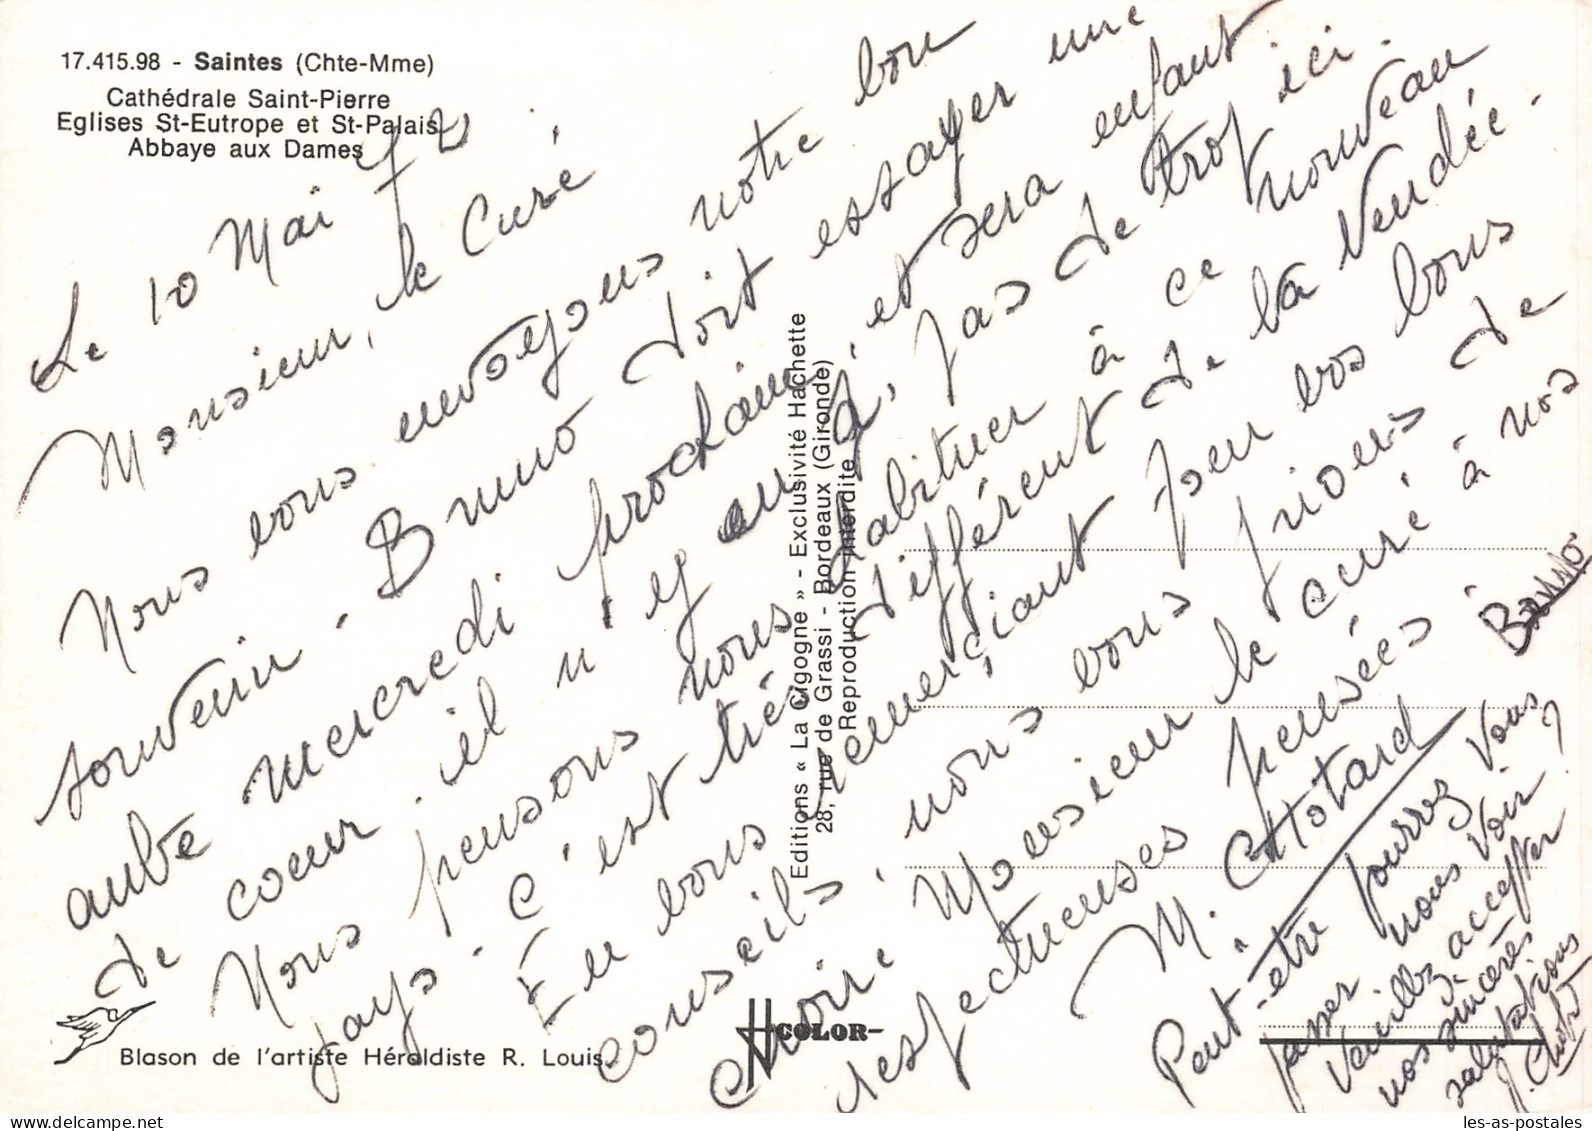 17.415.98 - Saintes (Chte-Mme)
Cathédrale Saint-Pierre
Eglises St-Eutrope et St-Palais
Abbaye aux Dames
Le 10 Mai 72
Monsieur, le Curé
Nous vous envoyons notre bon
souvenir. Bruno doit essayer une
aube mercredi prochain, et sera enfant
de coeur, il n'y en a, pas de trop ici.
Nous pensons nous habituer à ce nouveau
pays. C'est très différent de la Vendée.
En vous remerciant pour vos bons
conseils, nous vous prions de
croire Monsieur le curé à nos
respectueuses pensées
M. Chotard
Bruno
Peut-être pourrez Vous
passer nous voir ?
Veuillez accepter
nos sincères
salutations
J. Chotard
Editions « La Cigogne » - Exclusivité Hachette
28, rue de Grassi - Bordeaux (Gironde)
Reproduction interdite
COLOR
Blason de l'artiste Héraldiste R. Louis.
les-as-postales